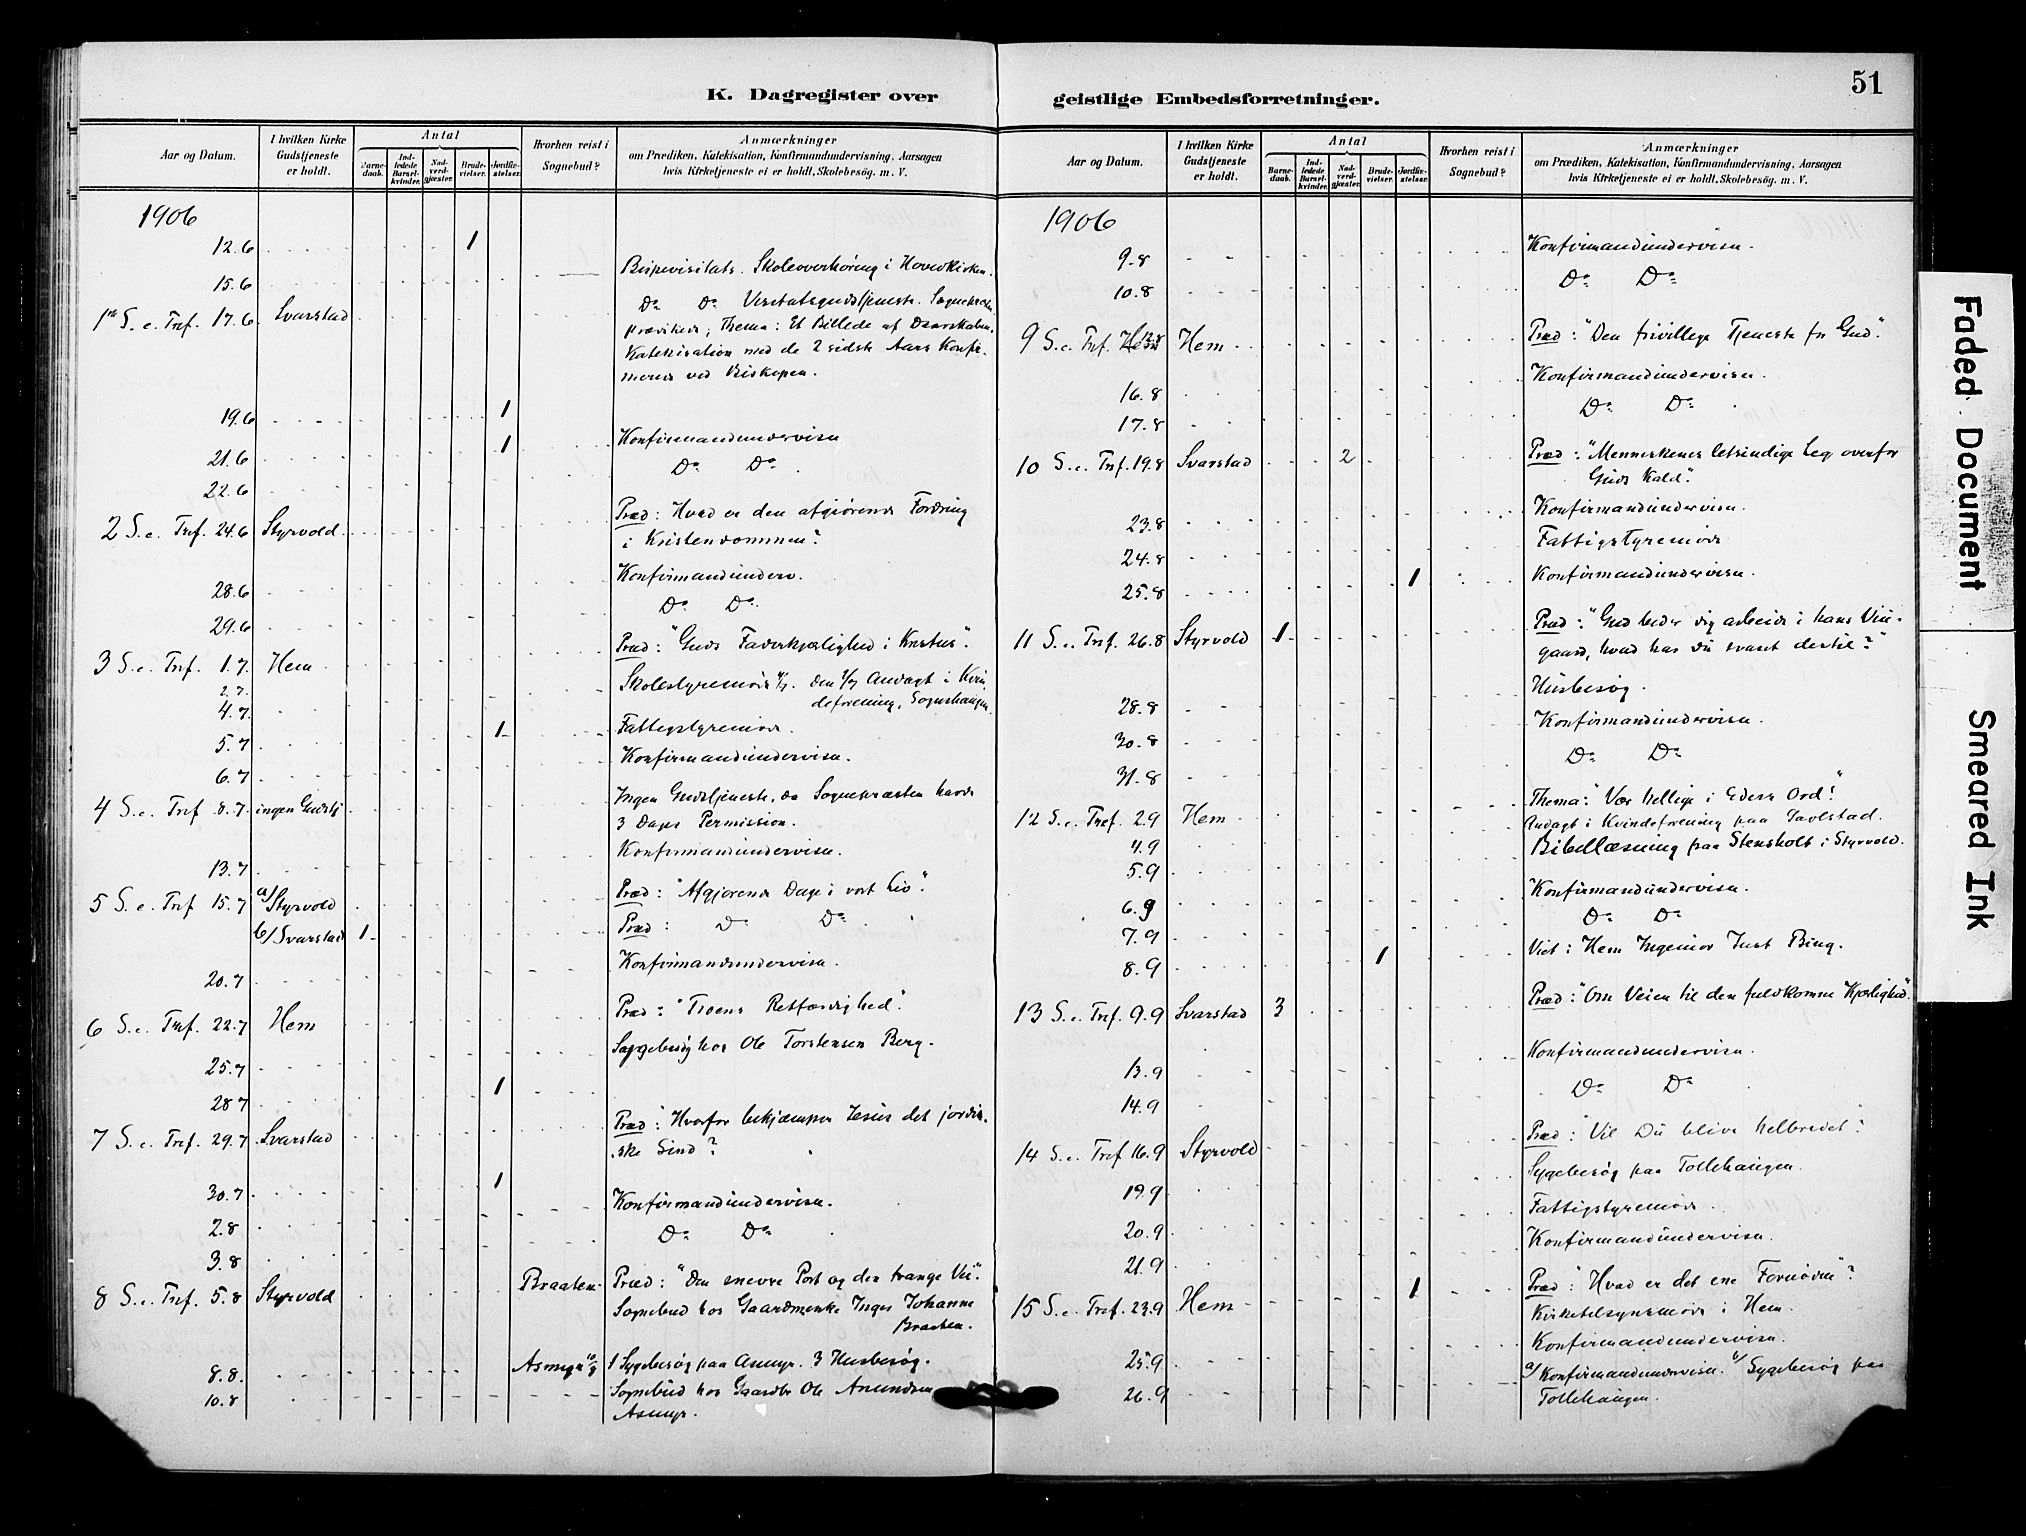 K. Dagregister over
Aar og Datum. I hvilken Kirke Gudstjeneste er holdt. Antal Barnedaab. Indledede Barselkvinder. Nadverdgjæster. Brudevielser. Jordfæstelser. Hvorhen reist i Sognebud? Anmærkninger om Prædiken, Katekisation, Konfirmandundervisning, Aarsagen hvis Kirketjeneste ei er holdt, Skolebesög. m. V.
1906
12.6 1
15.6 Bispevisitats. Skoleoverhøring i Hovedkirken.
1ste S. e. Tref. 17.6 Svarstad Do Do Visitatsgudstjeneste. Sognepræsten
prædikede; Thema: Et Billede af
Katekisation med de 2 sidste Aars Konfir-
merede ved Biskopen.
19.6 1
21.6 1 Konfirmandundervisn
22.6 Do Do
2 S. e. Tref. 24.6 Styrvold Præd: Hvad er den afgjørende Fordring
i Kristendommen?
28.6 Konfirmandunderv.
29.6 Do Do
3 S. e. Tref. 1.7. Hem Præd: "Guds Faderkjærlighed i Kristus".
2.7. Skolestyremøde 2/7. Den 4/7 Andagt i Kvin-
4.7. deforening,
5.7 1 Fattigstyremøde.
6.7 Konfirmandundervisn.
4 S. e. Tref 8.7. ingen Gudstj Ingen Gudstjeneste, da Sognepræsten havde
3 Dages Permission.
13.7 Konfirmandundervisn.
5 S. e. Tref 15.7 a/ Styrvold Præd: "Afgjørende Dage i vort Liv".
b/ Svarstad 1 Præd: Do Do
20.7 Konfirmandundervisn.
6 S. e. Tref. 22.7 Hem Præd: "Troens Retfærdighed".
25.7 Sygebesøg hos Ole Torstensen Berg.
28.7 1
7 S. e. Tref. 29.7 Svarstad Præd: "Hvorfor bekjæmper Jesus det jordi-
ske Sind?
30.7 1
2.8 Konfirmandundervisn.
3.8 Do Do
8 S. e. Tref. 5.8 Styrvold Braaten Præd: "Den snevre Port og den trange Vei".
Sognebud hos Gaardmenke Inger Johanne
Braaten.
8.8. Asmyr 10/8 1 Sygebesøg paa Asmyr. 3 Husbesøg.
10.8 Sognebud hos Gaardbr Ole Amundsen
Asmyr.
51
geistlige Embedsforretninger.
Aar og Datum. I hvilken Kirke Gudstjeneste er holdt. Antal Barnedaab. Indledede Barselkvinder. Nadverdgjæster. Brudevielser. Jordfæstelser. Hvorhen reist i Sognebud? Anmærkninger om Prædiken, Katekisation, Konfirmandundervisning, Aarsagen hvis Kirketjeneste ei er holdt, Skolebesög. m. V.
1906
9.8 Konfirmandundervisn.
10.8 Do Do
9 S. e. Tref. 12.8 Hem Præd: "Den frivillige Tjeneste for Gud".
16.8 Konfirmandundervisn.
17.8 Do Do
10 S. e. Tref. 19.8 Svarstad 2 Præd: "Menneskenes letsindige Leg overfor
Guds Kald".
23.8 Konfirmandundervisn.
24.8 Fattigstyremøde
25.8 1 Konfirmandundervisn.
11 S. e. Tref. 26.8 Styrvold 1 Præd: "Gud beder dig arbeide i hans Vin-
gaard, hvad har Du svaret dertil?"
28.8 Husbesøg.
30.8 Konfirmandundervisn.
31.8 Do Do
12 S. e. Tref. 2.9 Hem Thema: "Vær hellige i Eders Ord!
4.9 Andagt i Kvindeforening paa
5.9 Bibellæsning paa Stensholt i Styrvold.
6.9 Konfirmandundervisn.
7.9 Do Do
8.9 1 Viet: Hem Ingeniør Just Bing.
13 S. e. Tref. 9.9 Svarstad 3 Præd: "Om Veien til den fuldkomne Kjærlighed".
13.9 Konfirmandundervisn.
14.9 Do Do
14 S. e. Tref 16.9 Styrvold Præd: "Vil Du blive helbredet?
19.9 Sygebesøg paa Tollehaugen.
20.9 Fattigstyremøde.
21.9 Konfirmandundervisn.
15 S. e. Tref. 23.9 Hem 1 Præd: "Hvad er det ene Fornødne"?
Kirketilsynsmøde i Hem.
25.9 Konfirmandundervisn.
26.9 a/ Konfirmandundervisn. b/ Sygebesøg paa
Tollehaugen.
Faded Document
Smeared Ink